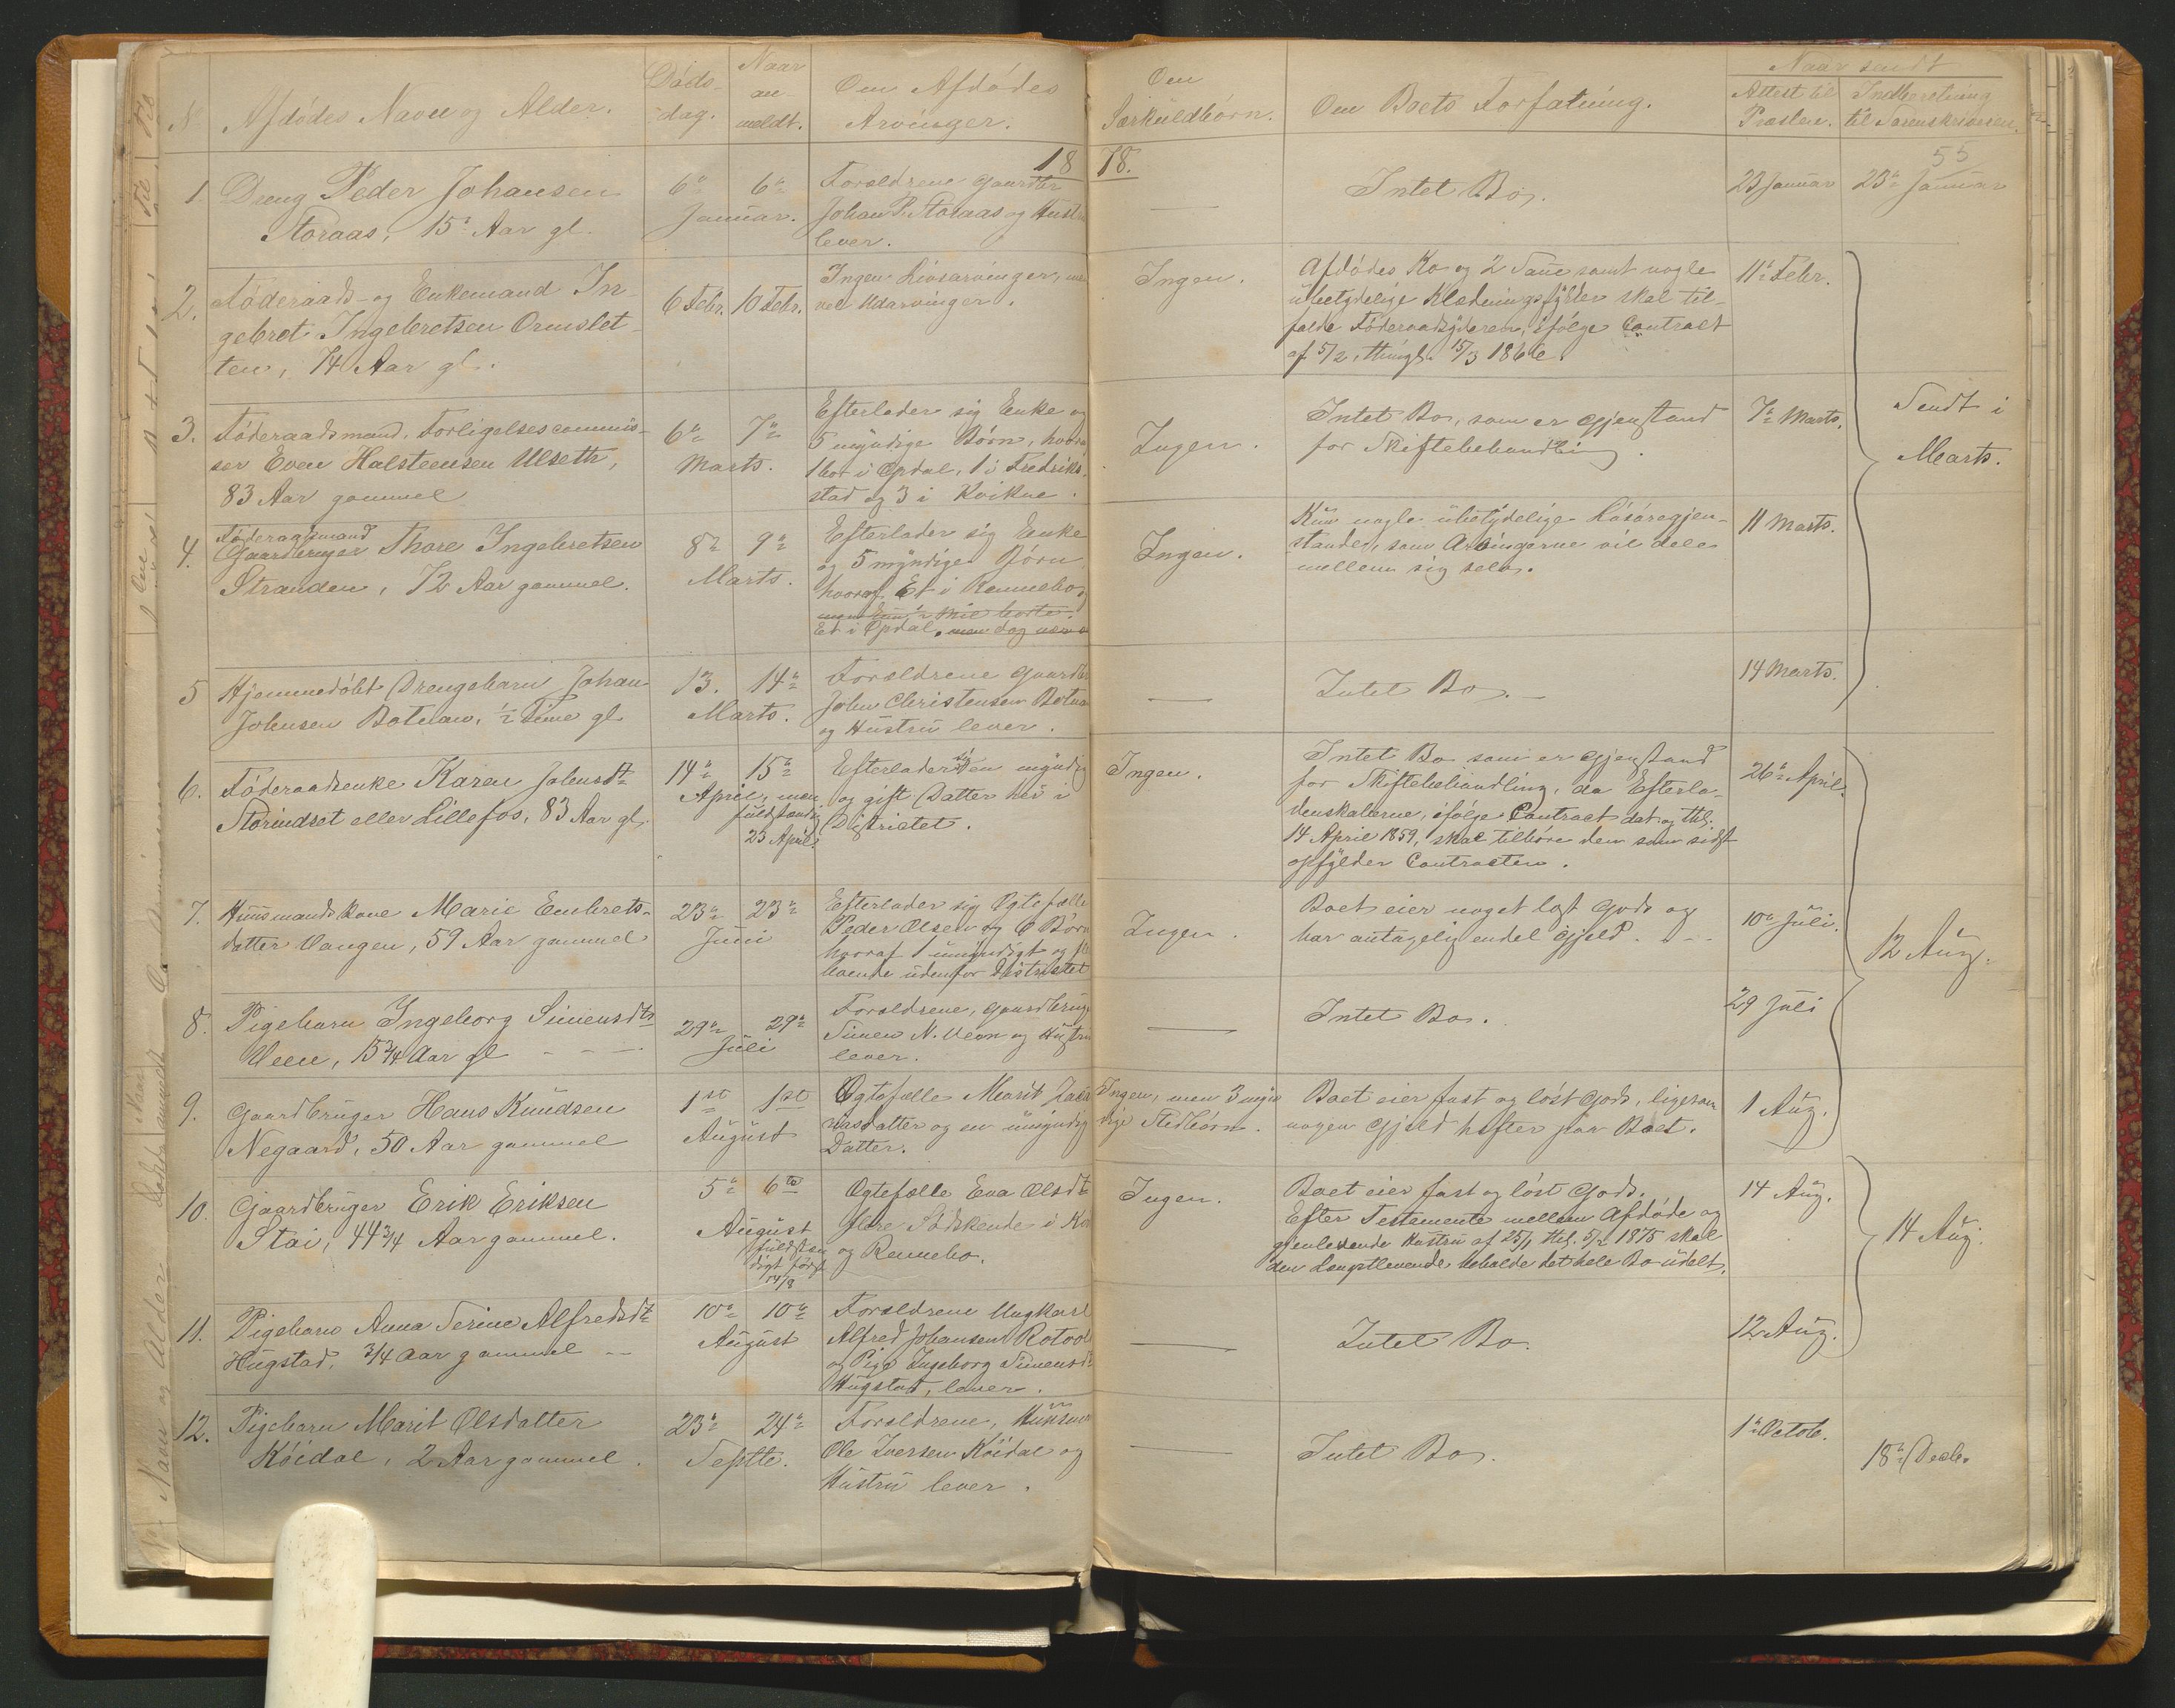 No
Afdødes Navn og Alder.
Døds-
dag.
Naar
an-
meldt.
Om Afdødes
Arvinger.
Om
Særkuldbørn.
Om Boets Forfatning.
Naar sendt
Attest til
Præsten.
Indberetning
til Sorenskriveren.
55
18 78.
1. Dreng Peder Johansen
Storaas, 15 Aar gl.
6te
6te
Januar.
Forældrene Gaardbr
Johan P. Storaas og Hustru
lever.
—
Intet Bo.
23 Januar
23de Januar
2. Føderaads- og Enkemand In-
gebret Ingebretsen Ormslet-
ten, 74 Aar gl.
6 Febr.
10 Febr.
Ingen Livsarvinger, men
vel Udarvinger.
Ingen.
Afdødes Ko og 2 Saue samt nogle
ubetydelige Klædningsstykker skal til-
falde Føderaadsyderen, ifølge Contract
af 5/2, thingl. 15/3 1866.
11te Febr.
3. Føderaadsmand, Forligelsescommis-
sær Even Halsteensen Ulseth,
83 Aar gammel
6te
7de
Marts.
Efterlader sig Enke og
5 myndige Børn, hvoraf
1 bor i Opdal, 1 i Fredrik-
stad og 3 i Kvikne.
Ingen.
Intet Bo, som er Gjenstand
for Skiftebehandling.
7de Marts.
Sendt i
Marts.
4. Føderaadsmand
Gaardbruger Thore Ingebretsen
Stranden, 72 Aar gammel.
8de
9de
Marts.
Efterlader sig Enke
og 5 myndige Børn
hvoraf Et i Rennebo,
men kun 1/2 Mil borte.
Et i Opdal, men dog nær
Ingen.
Kun nogle ubetydelige Løsøregjen-
stande, som Arvingerne vil dele
mellem sig selv.
11 Marts.
5 Hjemmedøbt Drengebarn Johan
Johnsen Botnan, 1/2 Time gl
13.
14de
Marts.
Forældrene Gaardbr
John Christensen Botnan
og Hustru lever.
—
Intet Bo. –
14 Marts.
6. Føderaadsenke Karen Johnsdtr
Storindset eller Lillefos, 83 Aar gl,
14de
15de
April, men
fuldstændig
23 April
Efterlader sig en myndig
og gift Datter her i
Districtet.
Ingen.
Intet Bo som er Gjenstand
for Skiftebehandling, da Efterla-
denskaberne, ifølge Contract dat og thl.
14 April 1859, skal tilhøre den som sidst
opfylder Contracten.
26de April.
7. Huusmandskone Marie Embrets-
datter Vangen, 59 Aar gammel
23de
23de
Juni
Efterlader sig Ægtefælle
Peder Olsen og 6 Børn
hvoraf 1 umyndigt og
boende udenfor Districtet
Ingen.
Boet eier noget løst Gods og
har antagelig endel Gjeld. – –
10de Juli.
12 Aug.
8. Pigebarn Ingeborg Simensdtr
Veen, 15 3/4 Aar gl – – –
29de
29de
Juli
Forældrene, Gaardbruger
Simen N. Veen og Hustru
lever.
—
Intet Bo.
29 Juli
9. Gaardbruger Hans Knudsen
Negaard, 50 Aar gammel
1ste
1ste
August
Ægtefælle Marit
datter og en umyndig
Datter.
Ingen, men 3 myn
dige Stedbørn.
Boet eier fast og løst Gods, ligesom
nogen Gjeld hefter paa Boet.
1 Aug.
10. Gaardbruger Erik Eriksen
Stai, 44 3/4 Aar gammel.
5te
6te
August
fuldstæn
digt først
14/8
Ægtefælle Eva Olsdtr
flere Sødskende i
og Rennebo.
Ingen.
Boet eier fast og løst Gods.
Efter Testemente mellem Afdøde og
gjenlevende Hustru af 25/1 thl. 5/2 1875 skal
den Længstlevende beholde det hele Bo udelt.
14 Aug.
14 Aug.
11. Pigebarn Anna Serine Alfredsdtr
Hugstad, 3/4 Aar gammel –
10de
10de
August
Forældrene Ungkarl
Alfred Johansen Rotvol
og Pige Ingeborg Simensdtr
Hugstad, lever.
—
Intet Bo.
12 Aug.
12. Pigebarn Marit Olsdatter
Køidal, 2 Aar gammel.
23de
24de
Septbr.
Forældrene, Huusm
Ole Iversen Køidal og
Hustru lever.
—
Intet Bo.
1ste Octob.
18de Decbr.